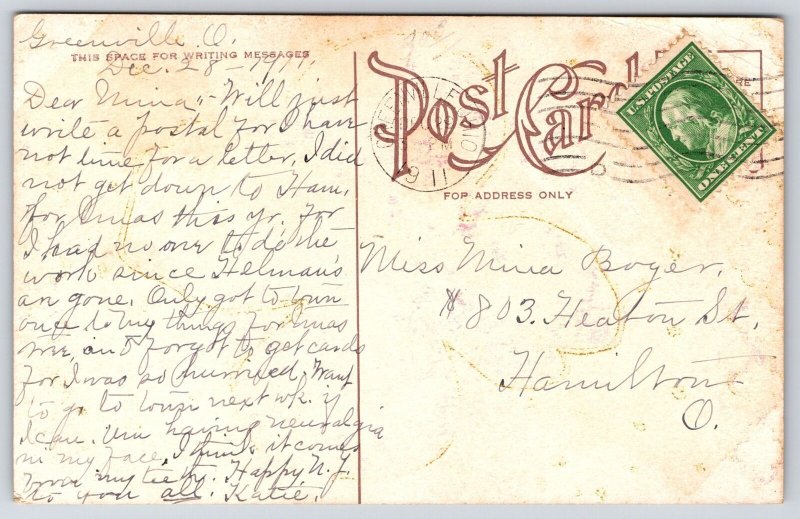 Greenville. O.
THIS SPACE FOR WRITING MESSAGES
Dec. 28-1911.
Dear Mina,-Will just
write a postal for I have
not time for a letter, I did
not get down to Ham.
for Xmas this yr. for
I had no one to do the
work since Helman's
are gone. Only got to town
once to buy things for Xmas
me, and forgot to get cards
for I was so hurried. Want
to go to town next wk. if
I can. Um having neuralgia
in my face, I think it comes
from my teeth. Happy N.Y.
to you all. Katie.
Post Card
GREENVILLE
OHIO
1911
U.S. POSTAGE
ONE CENT
FOR ADDRESS ONLY
Miss Mina Boyer.
# 803. Heaton St.
Hamilton
O.